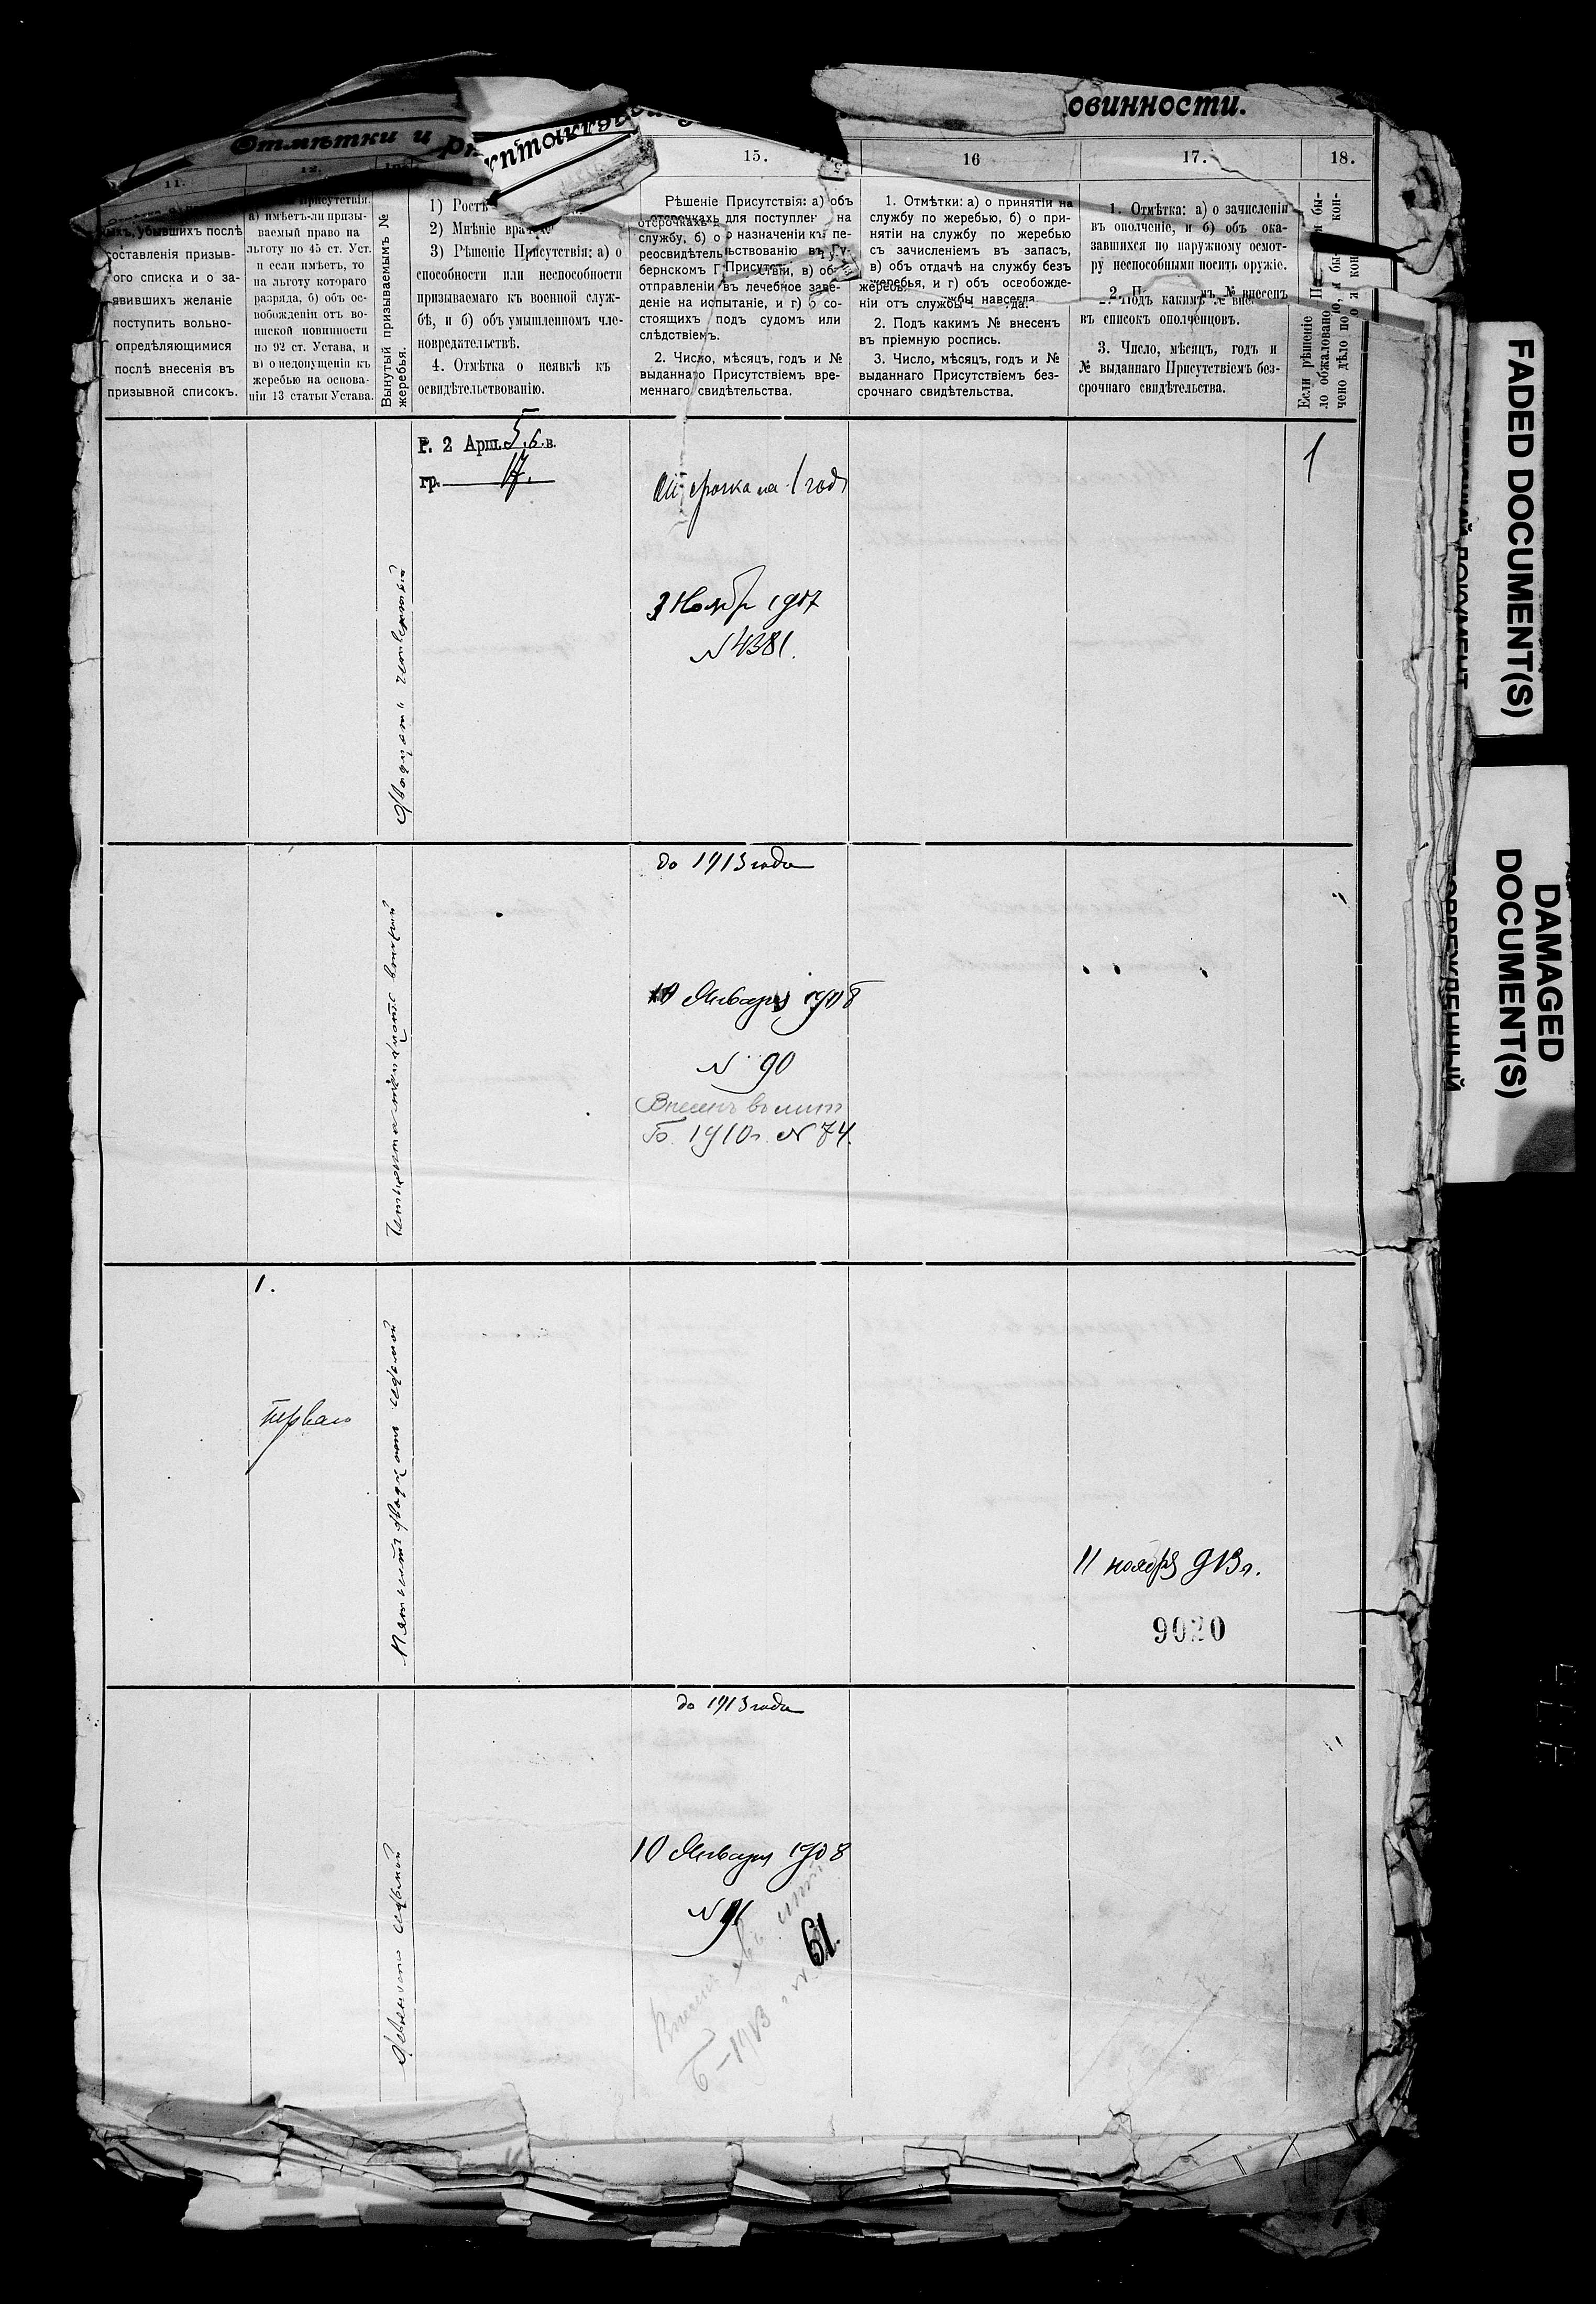 Отмѣтки и
овинности.
11.
12.
15.
16
17.
18.
ыхъ, убывшихъ послѣ
составленія призыв-
ого списка и о за-
явившихъ желаніе
поступить вольно-
опредѣляющимися
послѣ внесенія въ
призывной списокъ.
Присутствія:
а) имѣетъ-ли призы-
ваемый право на
льготу по 45 ст. Уст.
и если имѣетъ, то
на льготу котораго
разряда, б) объ ос-
вобожденіи отъ во-
инской повинности
по 92 ст. Устава, и
в) о недопущеніи къ
жеребью на основа-
ніи 13 статьи Устава.
Вынутый призываемымъ №
жеребья.
1) Ростъ
2) Мнѣніе врач
3) Рѣшеніе Присутствія: а) о
способности или неспособности
призываемаго къ военной служ-
бѣ, и б) объ умышленномъ чле-
новредительствѣ.
4. Отмѣтка о неявкѣ къ
освидѣтельствованію.
Рѣшеніе Присутствія: а) объ
отсрочкахъ для поступлен на
службу, б) о назначеніи къ пе-
реосвидѣтельствованію въ Гу-
бернскомъ Присутствіи, в) объ
отправленіи въ лечебное заве-
деніе на испытаніе, и г) о со-
стоящихъ подъ судомъ или
слѣдствіемъ.
2. Число, мѣсяцъ, годъ и №
выданнаго Присутствіемъ вре-
меннаго свидѣтельства.
1. Отмѣтки: а) о принятіи на
службу по жеребью, б) о при-
нятіи на службу по жеребью
съ зачисленіемъ въ запасъ,
в) объ отдачѣ на службу безъ
жеребья, и г) объ освобожде-
ніи отъ службы навсегда.
2. Подъ какимъ № внесенъ
въ пріемную роспись.
3. Число, мѣсяцъ, годъ и №
выданнаго Присутствіемъ без-
срочнаго свидѣтельства.
1. Отмѣтка: а) о зачисленіи
въ ополченіе, и б) объ ока-
завшихся по наружному осмот-
ру неспособными носить оружіе.
2. Подъ какимъ № внесенъ
въ списокъ ополченцовъ.
3. Число, мѣсяцъ, годъ и
№ выданнаго Присутствіемъ без-
срочнаго свидѣтельства.
Если рѣшеніе
ло обжаловано
чено дѣло по
Р. 2 Арш. 5.6.в.
гр. 17.
Отсрочка на 1 годъ
1
3 Ноябр 1907
N 4381.
Двадцать четвертый
до 1913 года
10 Января 1908
N 90
Внесенъ въ лит
Б. 1910г. N 74.
1.
перваго
Пятьсотъ двадцать седьмой
11 ноября 913 г.
9020
до 1913 года
10 Января 1908
N 91
Внесенъ въ лит
Б-1913 г N
61.
Девяносто седьмой
FADED DOCUMENT(S)
DAMAGED
DOCUMENT(S)